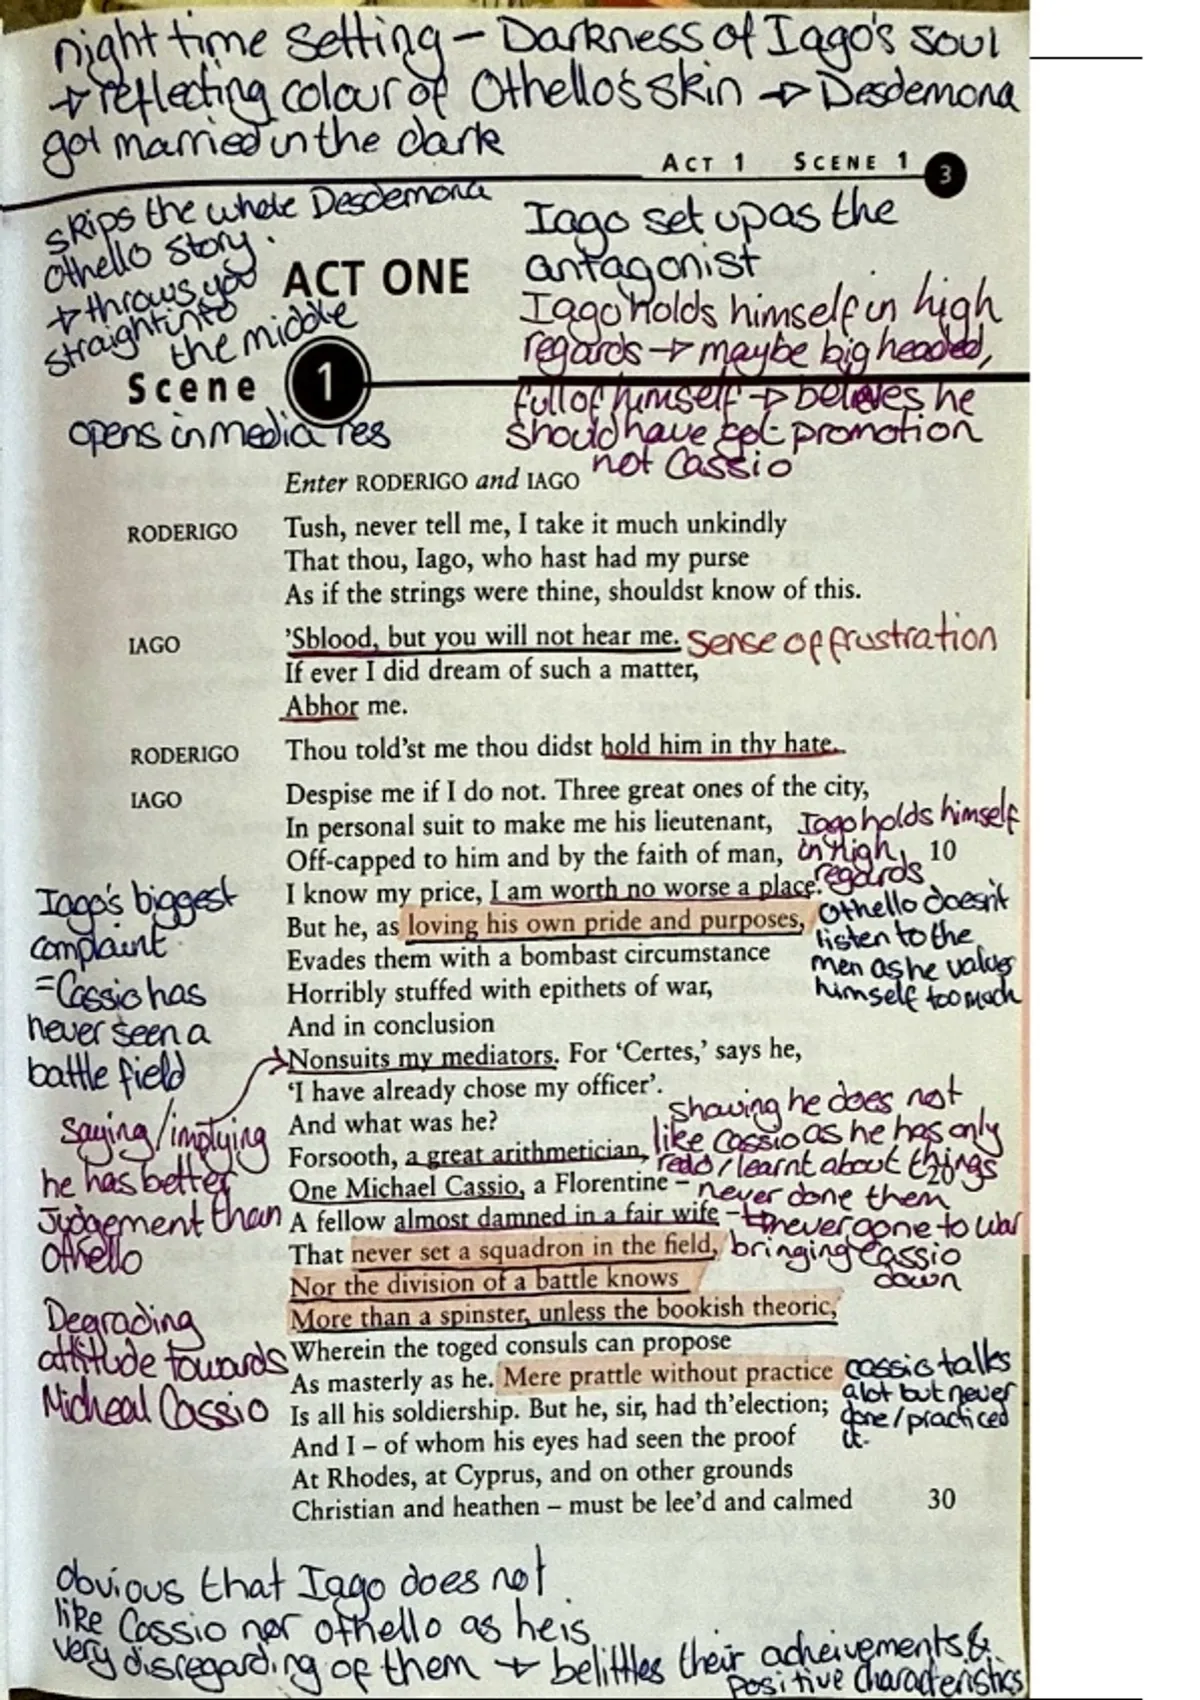 night time setting - Darkness of Iago's soul
→ reflecting colour of Othello's skin → Desdemona
got married in the dark
ACT 1 SCENE 1 3
skips the whole Desdemona
Othello story.
→ throws you
straight into
the middle
Iago set up as the
antagonist
Iago holds himself in high
regards → maybe big headed,
full of himself → believes he
should have got promotion
not Cassio
ACT ONE
Scene 1
opens in media res
Enter RODERIGO and IAGO
RODERIGO Tush, never tell me, I take it much unkindly
That thou, Iago, who hast had my purse
As if the strings were thine, shouldst know of this.
IAGO 'Sblood, but you will not hear me. Sense of frustration
If ever I did dream of such a matter,
Abhor me.
RODERIGO Thou told'st me thou didst hold him in thy hate.
IAGO Despise me if I do not. Three great ones of the city,
In personal suit to make me his lieutenant,
Off-capped to him and by the faith of man, 10
I know my price, I am worth no worse a place.
But he, as loving his own pride and purposes,
Evades them with a bombast circumstance
Horribly stuffed with epithets of war,
And in conclusion
Nonsuits my mediators. For 'Certes,' says he,
'I have already chose my officer'.
And what was he?
Forsooth, a great arithmetician,
One Michael Cassio, a Florentine – 20
A fellow almost damned in a fair wife –
That never set a squadron in the field,
Nor the division of a battle knows
More than a spinster, unless the bookish theoric,
Wherein the toged consuls can propose
As masterly as he. Mere prattle without practice
Is all his soldiership. But he, sir, had th'election;
And I – of whom his eyes had seen the proof
At Rhodes, at Cyprus, and on other grounds
Christian and heathen – must be lee'd and calmed 30
Iago holds himself
in high
regards
Othello doesn't
listen to the
men as he values
himself too much
Iago's biggest
complaint
= Cassio has
never seen a
battle field
saying/implying
he has better
judgement than
Othello
Degrading
attitude towards
Micheal Cassio
showing he does not
like Cassio as he has only
read/learnt about things
never done them
→ never gone to war
bringing Cassio
down
cassio talks
a lot but never
done/practiced
it.
obvious that Iago does not
like Cassio nor othello as he is
very disregarding of them → belittles their acheivements &
positive characteristics